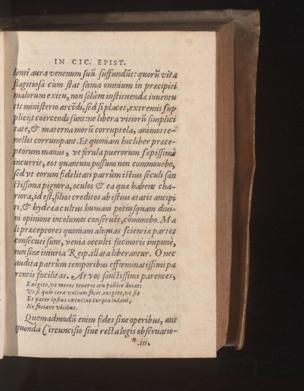 IN CIC. EPIST.
lenti aura venenum suū suffundūt: quorū vita
flagitiosa cùm stat fama omnium in præcipiti
malorum exitu, non solùm instituenda iuuentu
tis ministerio arcēdi, sed si places, extremis sup
plicijs coërcendi sunt: ne libera vitiorū simplici
tate, & materna morū corruptela, animos te-
nellos corrumpant. Et quoniam hic liber præce-
ptorum manus, vt ferula puerorum sæpissimè
incurrit, eos quantum possum non commouebo,
sed vt eorum fidelitati patrum istius seculi san
ctissima pignora, oculos & ea quæ habent cha-
riora, id est, filios creditos ab istius ætatis ancipi
ti, & hydræ cultus humani potius quàm diui-
ni opinione incolumes conseruēt, cōmonebo. Ma
li præceptores quoniam aliquas scientia partes
consecuti sunt, venia occulti facinoris impunè,
non sine iniuria Reip. allata liberantur. O nec
audita patrum temporibus effœminatissimi pa
rentis facilitas. At vos sanctissimi parentes,
Exigite, vt mores teneros ceu pollice ducat:
Vt si quis cera vultum facit: exigite, vt sit
Et pater ipsius cœtus: ne turpia ludant,
Ne faciant vicibus.
Quemadmodū enim fides sine operibus, aut
quonda Circuncisio sine recta legis obseruatio-
*.iii.